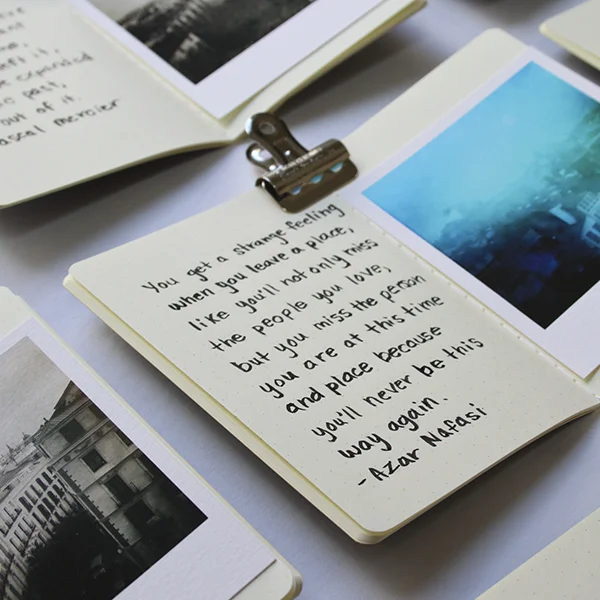 expanded
past,
out of it.
mercier
You get a strange feeling
when you leave a place,
like you'll not only miss
the people you love,
but you miss the person
you are at this time
and place because
you'll never be this
way again.
-Azar Nafasi